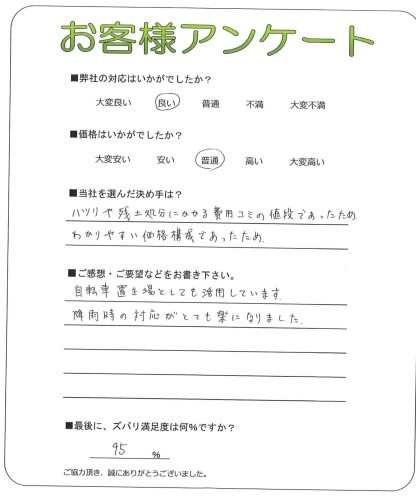 お客様アンケート
■弊社の対応はいかがでしたか？
大変良い 良い 普通 不満 大変不満
■価格はいかがでしたか？
大変安い 安い 普通 高い 大変高い
■当社を選んだ決め手は？
ハツリや残土処分にかかる費用コミの値段であったため
わかりやすい価格構成であったため.
■ご感想・ご要望などをお書き下さい。
自転車置き場としても活用しています.
降雨時の対応がとても楽になりました.
■最後に、ズバリ満足度は何％ですか？
95 ％
ご協力頂き、誠にありがとうございました。